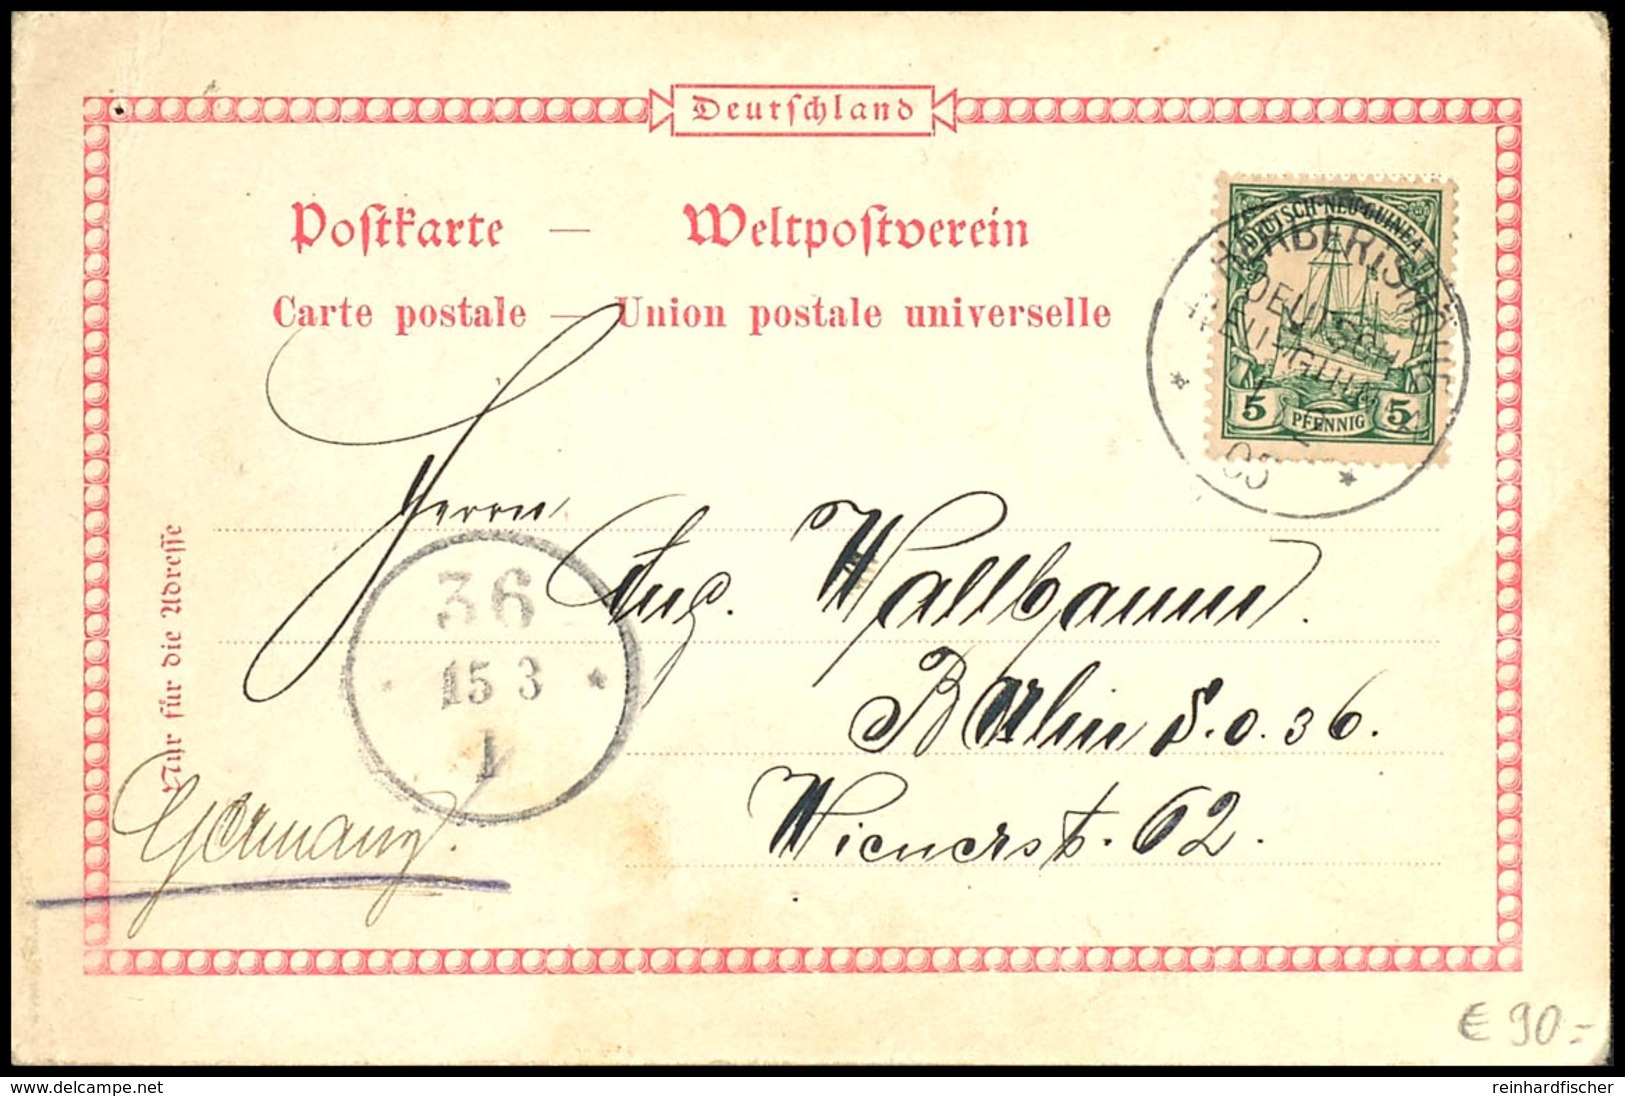 Deutschland
Postkarte — Weltpostverein
Carte postale — Union postale universelle
DEUTSCH-NEU-GUINEA
5 PFENNIG 5
HERBERTSHÖHE
DEUTSCH
NEU-GUINEA
03
Herrn
Aug. Wallbaum.
Berlin S.O. 36.
Wienerst. 62.
36
15 3
Nur für die Adresse
Germany.
€ 90.-
www.delcampe.net
reinhardfischer